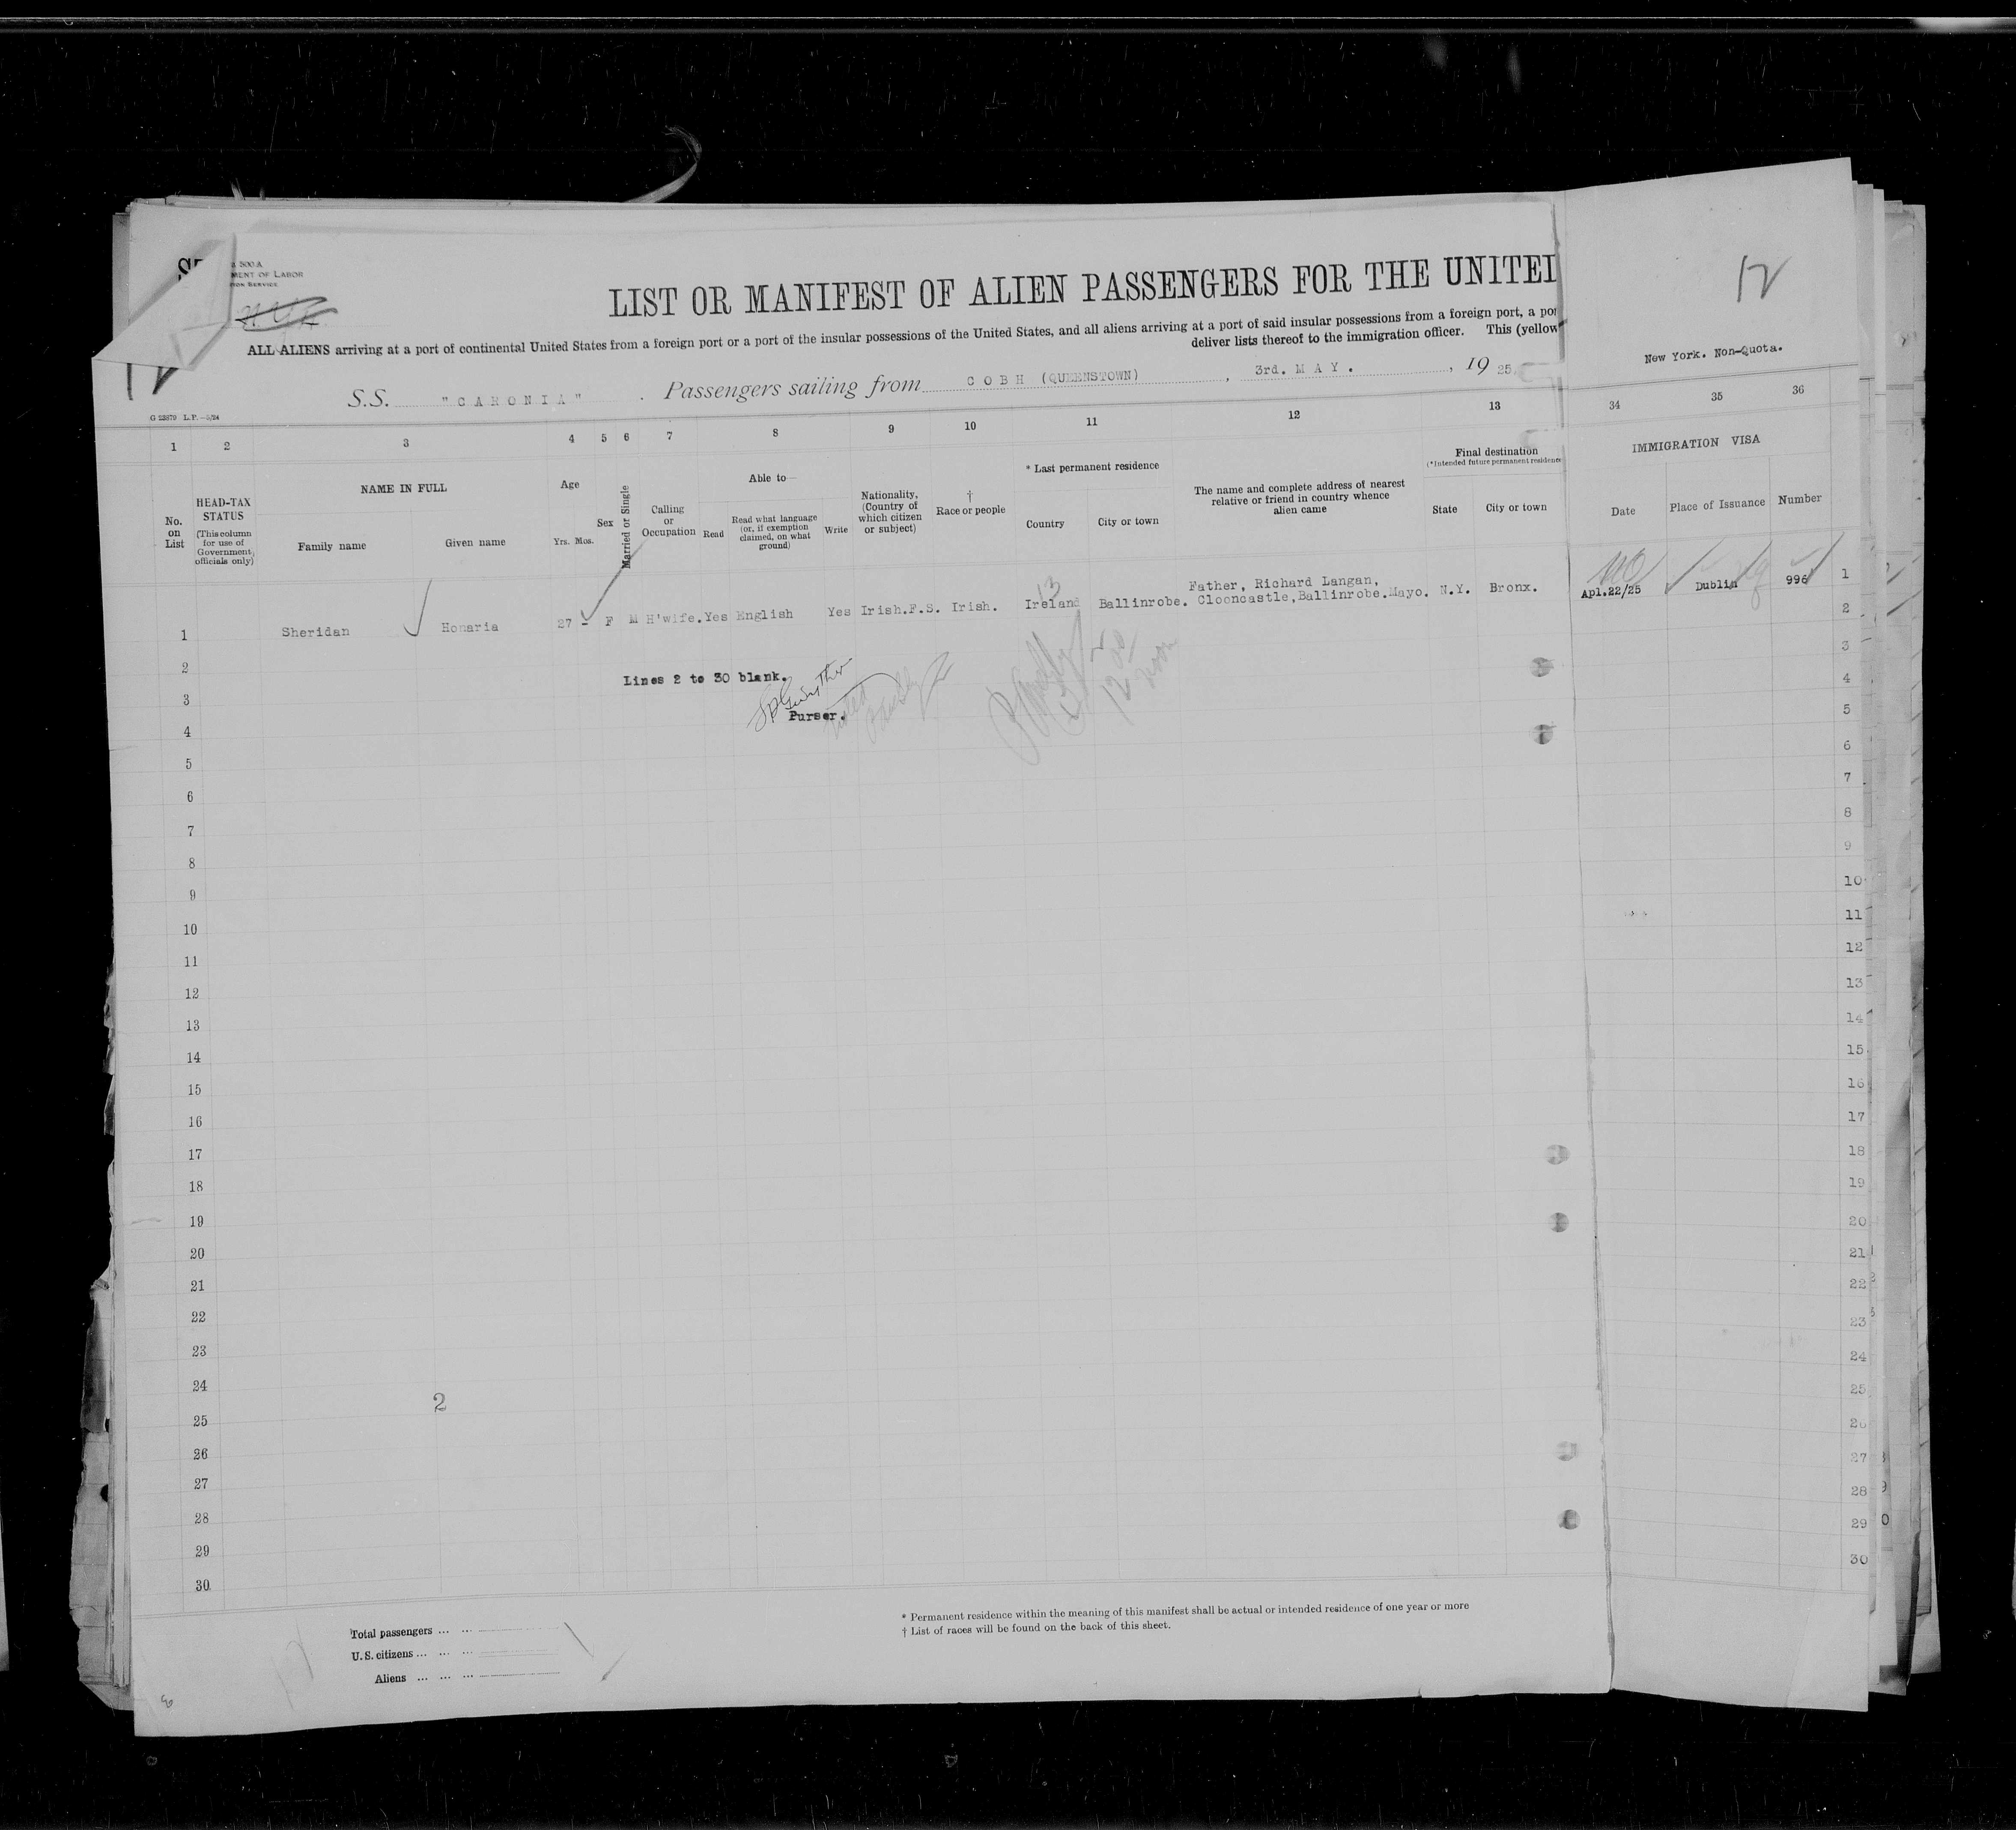 500 A
MENT OF LABOR
ION SERVICE
12
LIST OR MANIFEST OF ALIEN PASSENGERS FOR THE UNITE
ALL ALIENS arriving at a port of continental United States from a foreign port or a port of the insular possessions of the United States, and all aliens arriving at a port of said insular possessions from a foreign port, a po
deliver lists thereof to the immigration officer. This (yellow
New York. Non-Quota.
12
S.S. "CARONIA" . Passengers sailing from COBH (QUEENSTOWN) , 3rd. MAY. , 19 25.
G 23879 L.P.—5/24
1 2 3 4 5 6 7 8 9 10 11 12 13 34 35 36
No. on List
HEAD-TAX STATUS
(This column for use of Government officials only)
NAME IN FULL
Family name Given name
Age
Yrs. Mos.
Sex
Married or Single
Calling or Occupation
Able to—
Read
Read what language (or, if exemption claimed, on what ground)
Write
Nationality, (Country of which citizen or subject)
† Race or people
* Last permanent residence
Country City or town
The name and complete address of nearest relative or friend in country whence alien came
Final destination
(*Intended future permanent residence
State City or town
IMMIGRATION VISA
Date Place of Issuance Number
13
Father, Richard Langan,
1 Sheridan Honaria 27 - F M H'wife. Yes English Yes Irish.F.S. Irish. Ireland Ballinrobe. Clooncastle,Ballinrobe.Mayo. N.Y. Bronx. Apl.22/25 Dublin 996 1
2 Lines 2 to 30 blank. 2
3 Purser. 3
4 4
5 5
6 6
7 7
8 8
9 9
10 10
11 11
12 12
13 13
14 14
15 15
16 16
17 17
18 18
19 19
20 20
21 21
22 22
23 23
24 24
2
25 25
26 26
27 27
28 28
29 29
30 30
Total passengers ... ...
U.S. citizens ... ... ...
Aliens ... ... ...
* Permanent residence within the meaning of this manifest shall be actual or intended residence of one year or more
† List of races will be found on the back of this sheet.